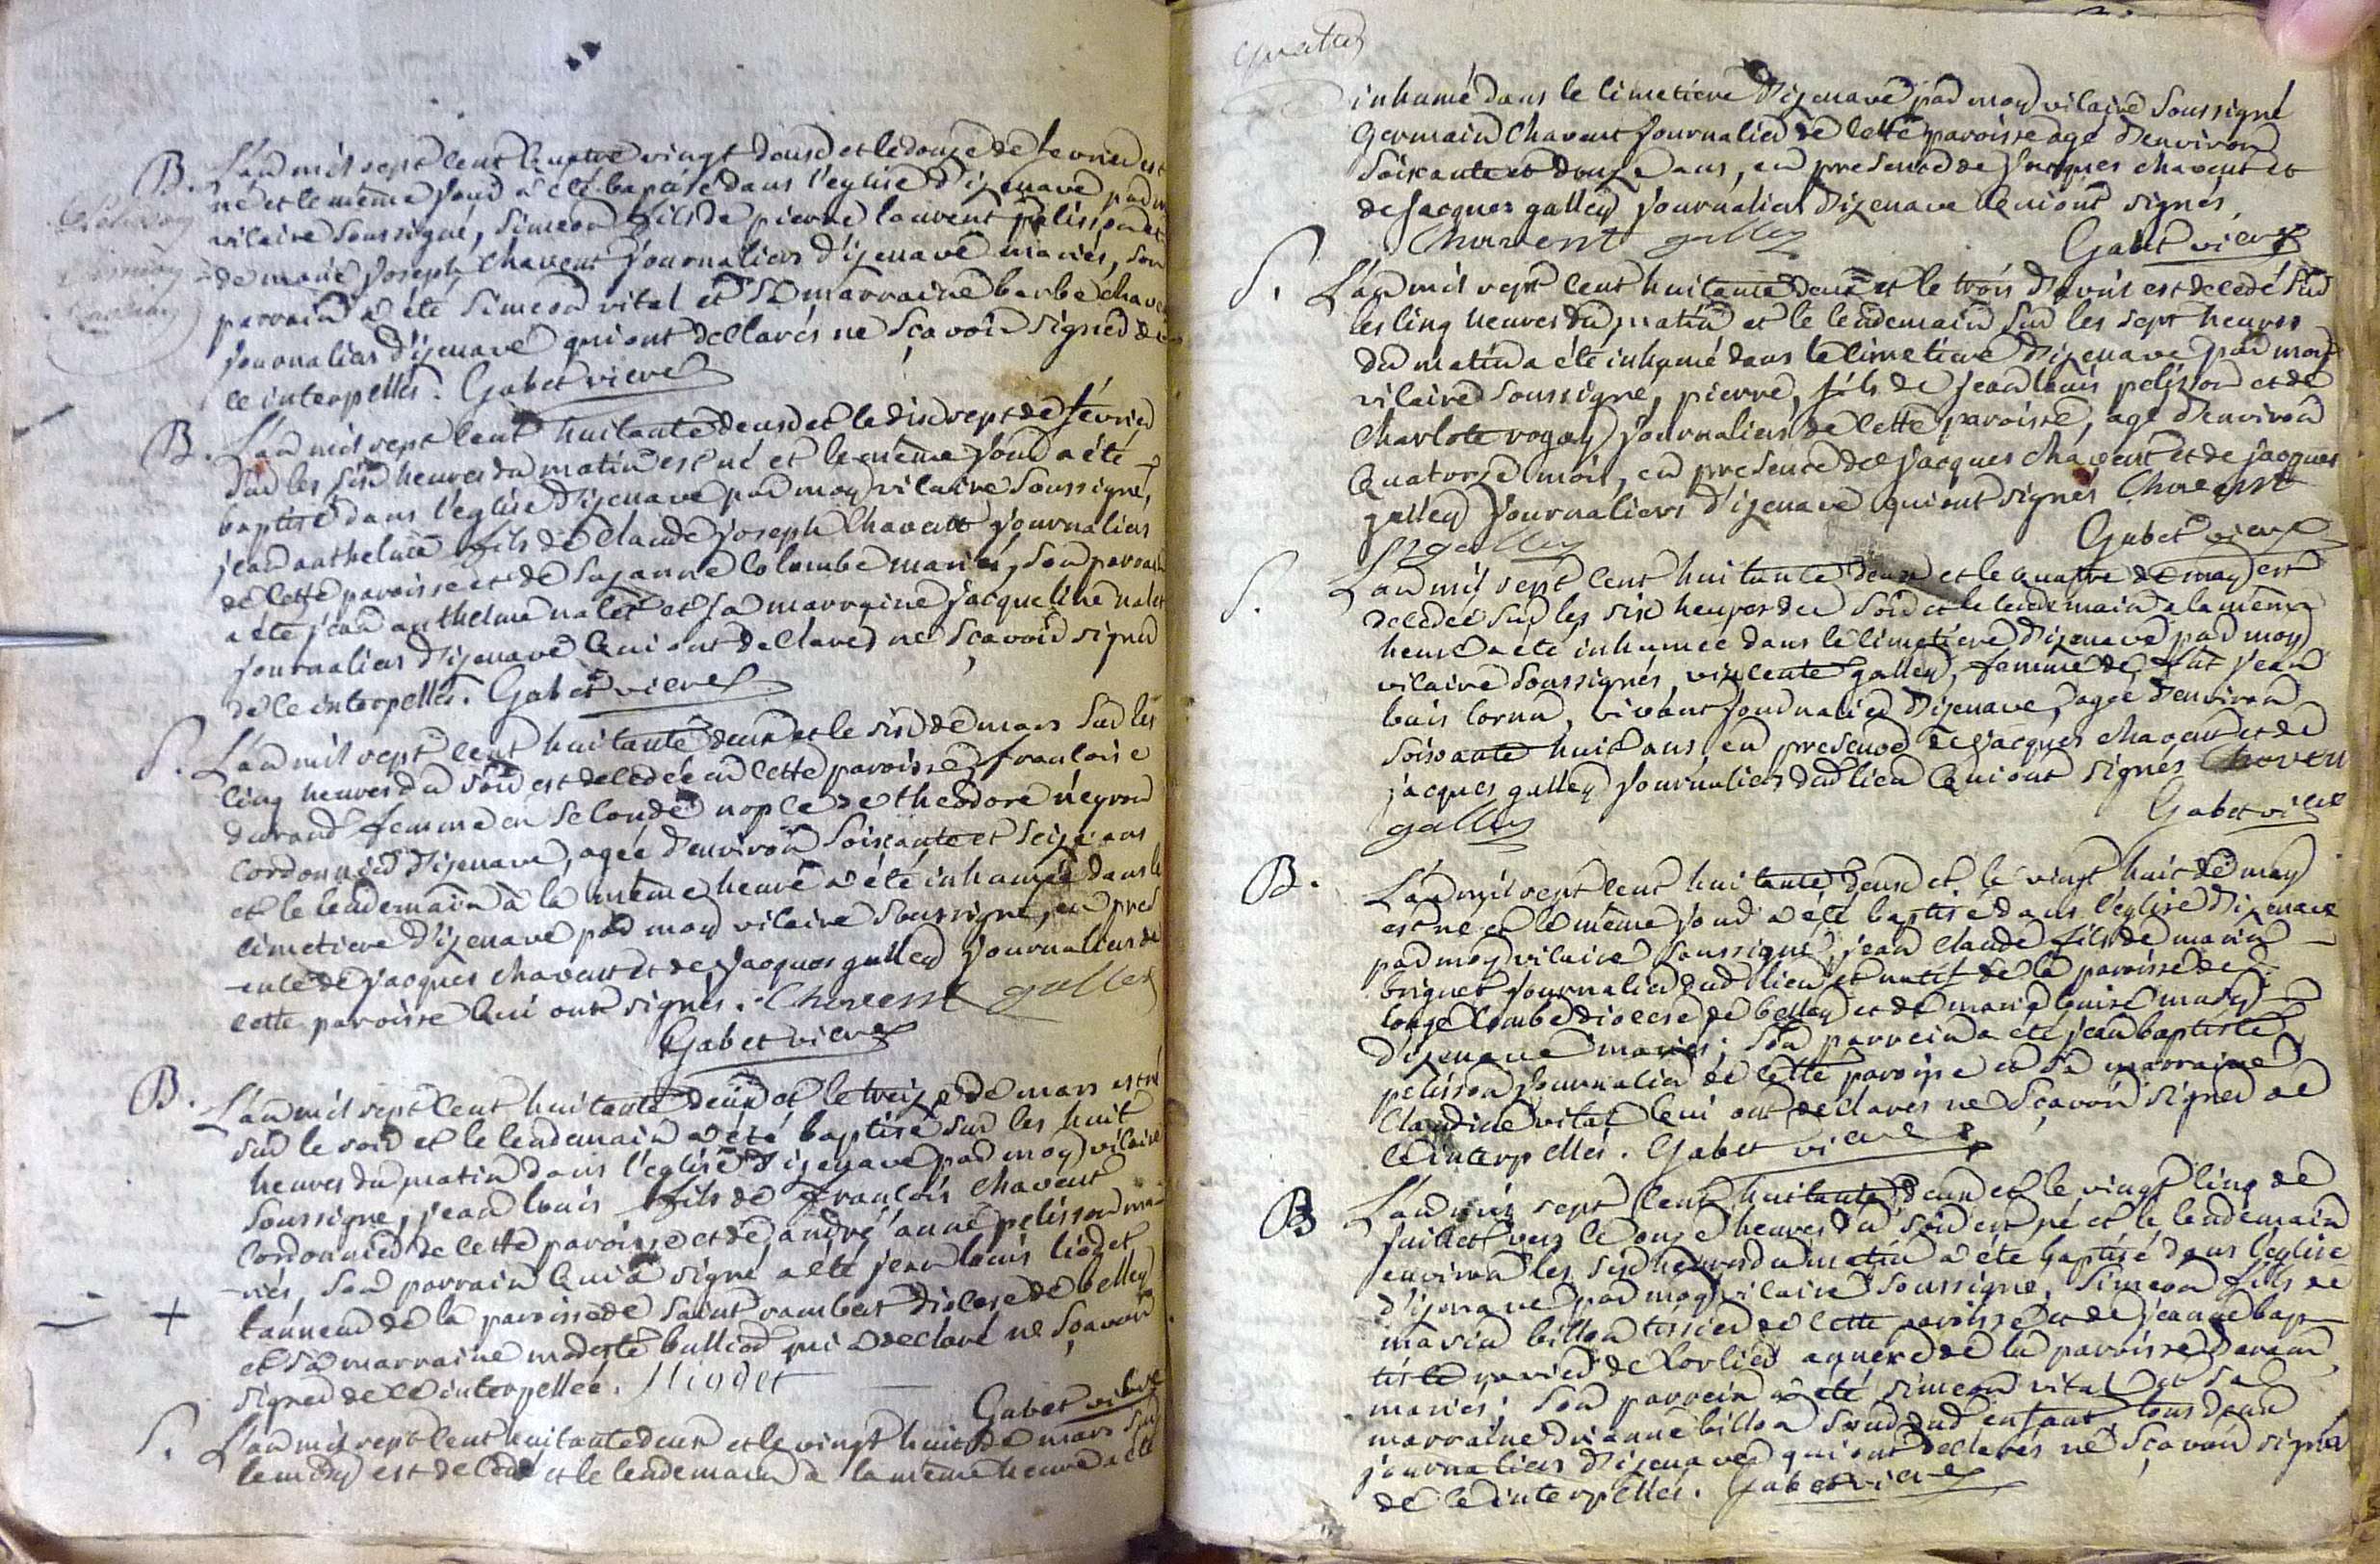 B. L'an mil sept cent quatre vingt deux et le douze de fevrier est
né et le même jour a été baptisé dans l'eglise d'izenave par m
vicaire soussigné, Simeon fils de pierre laurent pelisson et
de marie Joseph Chavent journaliers d'izenave mariés, son
parrain a été Simeon vital et sa marraine barbe chave
journaliers d'izenave qui ont déclarés ne sçavoir signer de
ce interpellés. Gabet vicre
B. L'an mil sept cent huitante deux et le dix sept de février
sur les six heures du matin est né et le même jour a été
baptisé dans l'église d'izenave par moy vicaire soussigné,
jean anthelme fils de Claude joseph Chavent journaliers
de cette paroisse et de Suzanne Colombe mariés, son parrain
a été jean anthelme nalet et sa marraine jacqueline nalet
journaliers d'izenave qui ont declares ne sçavoir signer
de ce interpellés. Gabet vicre
S. L'an mil sept cent huitante deux et le six de mars sur les
cinq heures du soir est decedée en cette paroisse, francoise
durand femme en seconde nopce de theodore neyron
Cordonnier d'izenave, agée d'environ soixante et seize ans
et le lendemain à la même heure a été inhumée dans le
cimetiere d'izenave par moy vicaire soussigné, en pres
ence de jacques chavent et de jacques galley journaliers de
cette paroisse qui ont signés. Chavent galley
Gabet vicre
B. L'an mil sept cent huitante deux et le treize de mars est né
sur le soir et le lendemain a été baptisé sur les huit
heures du matin dans l'eglise d'izenave par moy vicaire
soussigné, jean louis fils de francois Chavent
Cordonnier de cette paroisse et de andré anne pelisson ma
riés, son parrain qui a signé a été jean louis liodet
+ tanneur de la paroisse de saint rambert diocese de belley
et sa marraine modeste bulliod qui a declaré ne sçavoir
signer de ce interpellée. Lliodet
Gabet vicre
S. L'an mil sept cent huitante deux et le vingt huit de mars sur
le midy est decedé et le lendemain à la même heure a été
quatre
inhumé dans le cimetiere d'izenave par moy vicaire soussigné
Germain Chavent journalier de cette paroisse agé d'environ
soixante et douze ans, en presence de jacques chavent et
de jacques galley journaliers d'izenave qui ont signés,
Chavent galley Gabet vicre
S. L'an mil sept cent huitante deux et le trois d'avril est decedé sur
les cinq heures du matin et le lendemain sur les sept heures
du matin a été inhumé dans le cimetiere d'izenave par moy
vicaire soussigné, pierre, fils de jean louis pelisson et de
Charlote journaliers de cette paroisse, agé d'environ
quatorze mois, en presence de jacques chavent et de jacques
galley journaliers d'izenave qui ont signés Chavent
galley Gabet vicre
S. L'an mil sept cent huitante deux et le quatre de may est
decedée sur les six heures du soir et le lendemain a la même
heure a été inhumée dans le cimetiere d'izenave par moy
vicaire soussignés, vincente galley, femme de fut jean
louis Cornu, vivant journalier d'izenave, agée d'environ
soixante huit ans, en presence de jacques chavent et de
jacques galley journaliers dud lieu qui ont signés Chaven
galley Gabet vicre
B. L'an mil sept cent huitante deux et le vingt huit de may
est né et le même jour a été baptisé dans l'eglise d'izenave
par moy vicaire soussigné, jean claude fils de marin
briguet journalier dud lieu et natif de la paroisse de
longe Combe diocese de belley et de marie louise
d'izenave mariés; son parrein a été jean baptiste
pelisson journalier de cette paroisse et sa marraine
Claudine vital qui ont declarés ne sçavoir signer de
ce interpellés. Gabet vicre
B L'an mil sept cent huitante deux et le vingt cinq de
juillet vers le onze heures du soir est né et le lendemain
environ les six heures du matin a été baptisé dans l'église
d'izenave par moy vicaire soussigné, Simeon fils de
marin billon tissier de cette paroisse et de jeanne bap
tiste de Corlier annexe de la paroisse d'aranc,
mariés; son parrein a été simeon vital et sa
marraine billon sœur dud enfant, tous deux
journaliers d'izenave qui ont declarés ne sçavoir signer
de ce interpellés. Gabet vicre